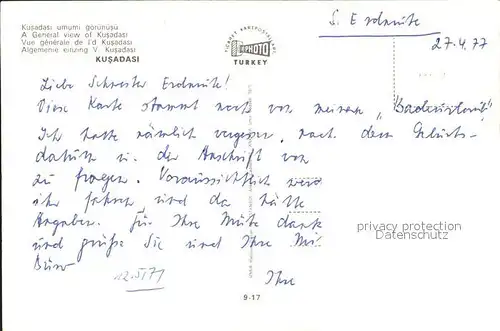 Kuşadası umumi görünüşü
A General view of Kuşadası
Vue générale de l'd Kuşadası
Algemenie einzing V. Kuşadası
KUŞADASI
TÜRKEY KARTPOSTALLARI
PHOTO
TURKEY
S. Erdmute
27.4.77
Liebe Schwester Erdmute!
Diese Karte stammt noch von meinem "Badeurlaub"
Ich hatte nämlich vergessen, nach dem Geburts-
datum u. der Anschrift von
zu fragen. Voraussichtlich werd
ihr fahren und da hätte
Angaben. Für Ihre Mühe dank
und grüße Sie und Ihre Mi
Büro
Ihre
privacy protection
Datenschutz
9-17